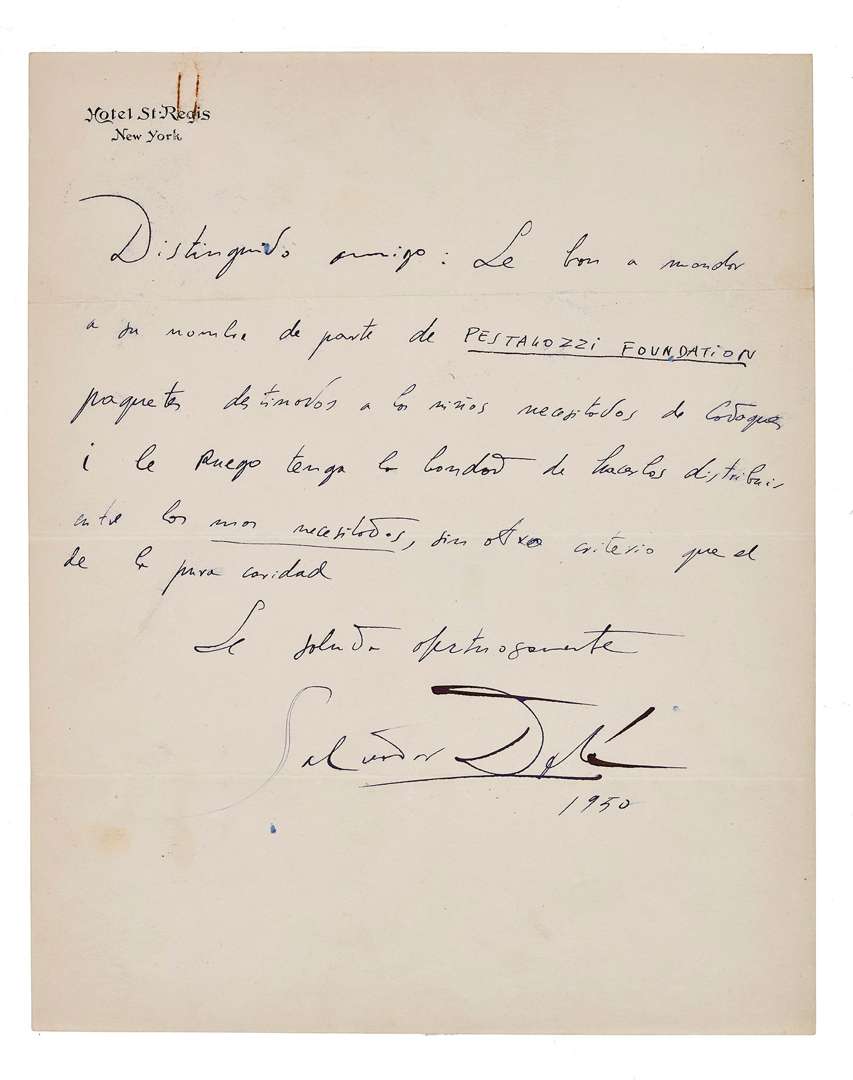 Hotel St. Regis
New York
Distinguido amigo: Le ban a mandar
a su nombre de parte de PESTALOZZI FOUNDATION
paquetes destinados a los niños necesitados de Cadaques
i le Ruego tenga la bondad de hacerlos distribuir
entre los mas necesitados, sin otro criterio que el
de la pura caridad
Le saluda afectuosamente
Salvador Dalí
1950